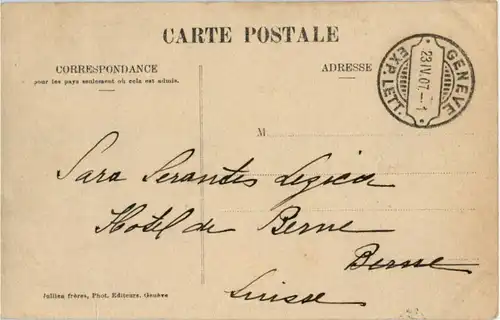 CARTE POSTALE
CORRESPONDANCE
pour les pays seulement où cela est admis.
ADRESSE
GENÈVE
23 IV. 07. - 1
EXP. LETT.
M
Sara Serantes Legica
Hotel de Berne
Berne
Suisse
Jullien frères, Phot. Editeurs, Genève